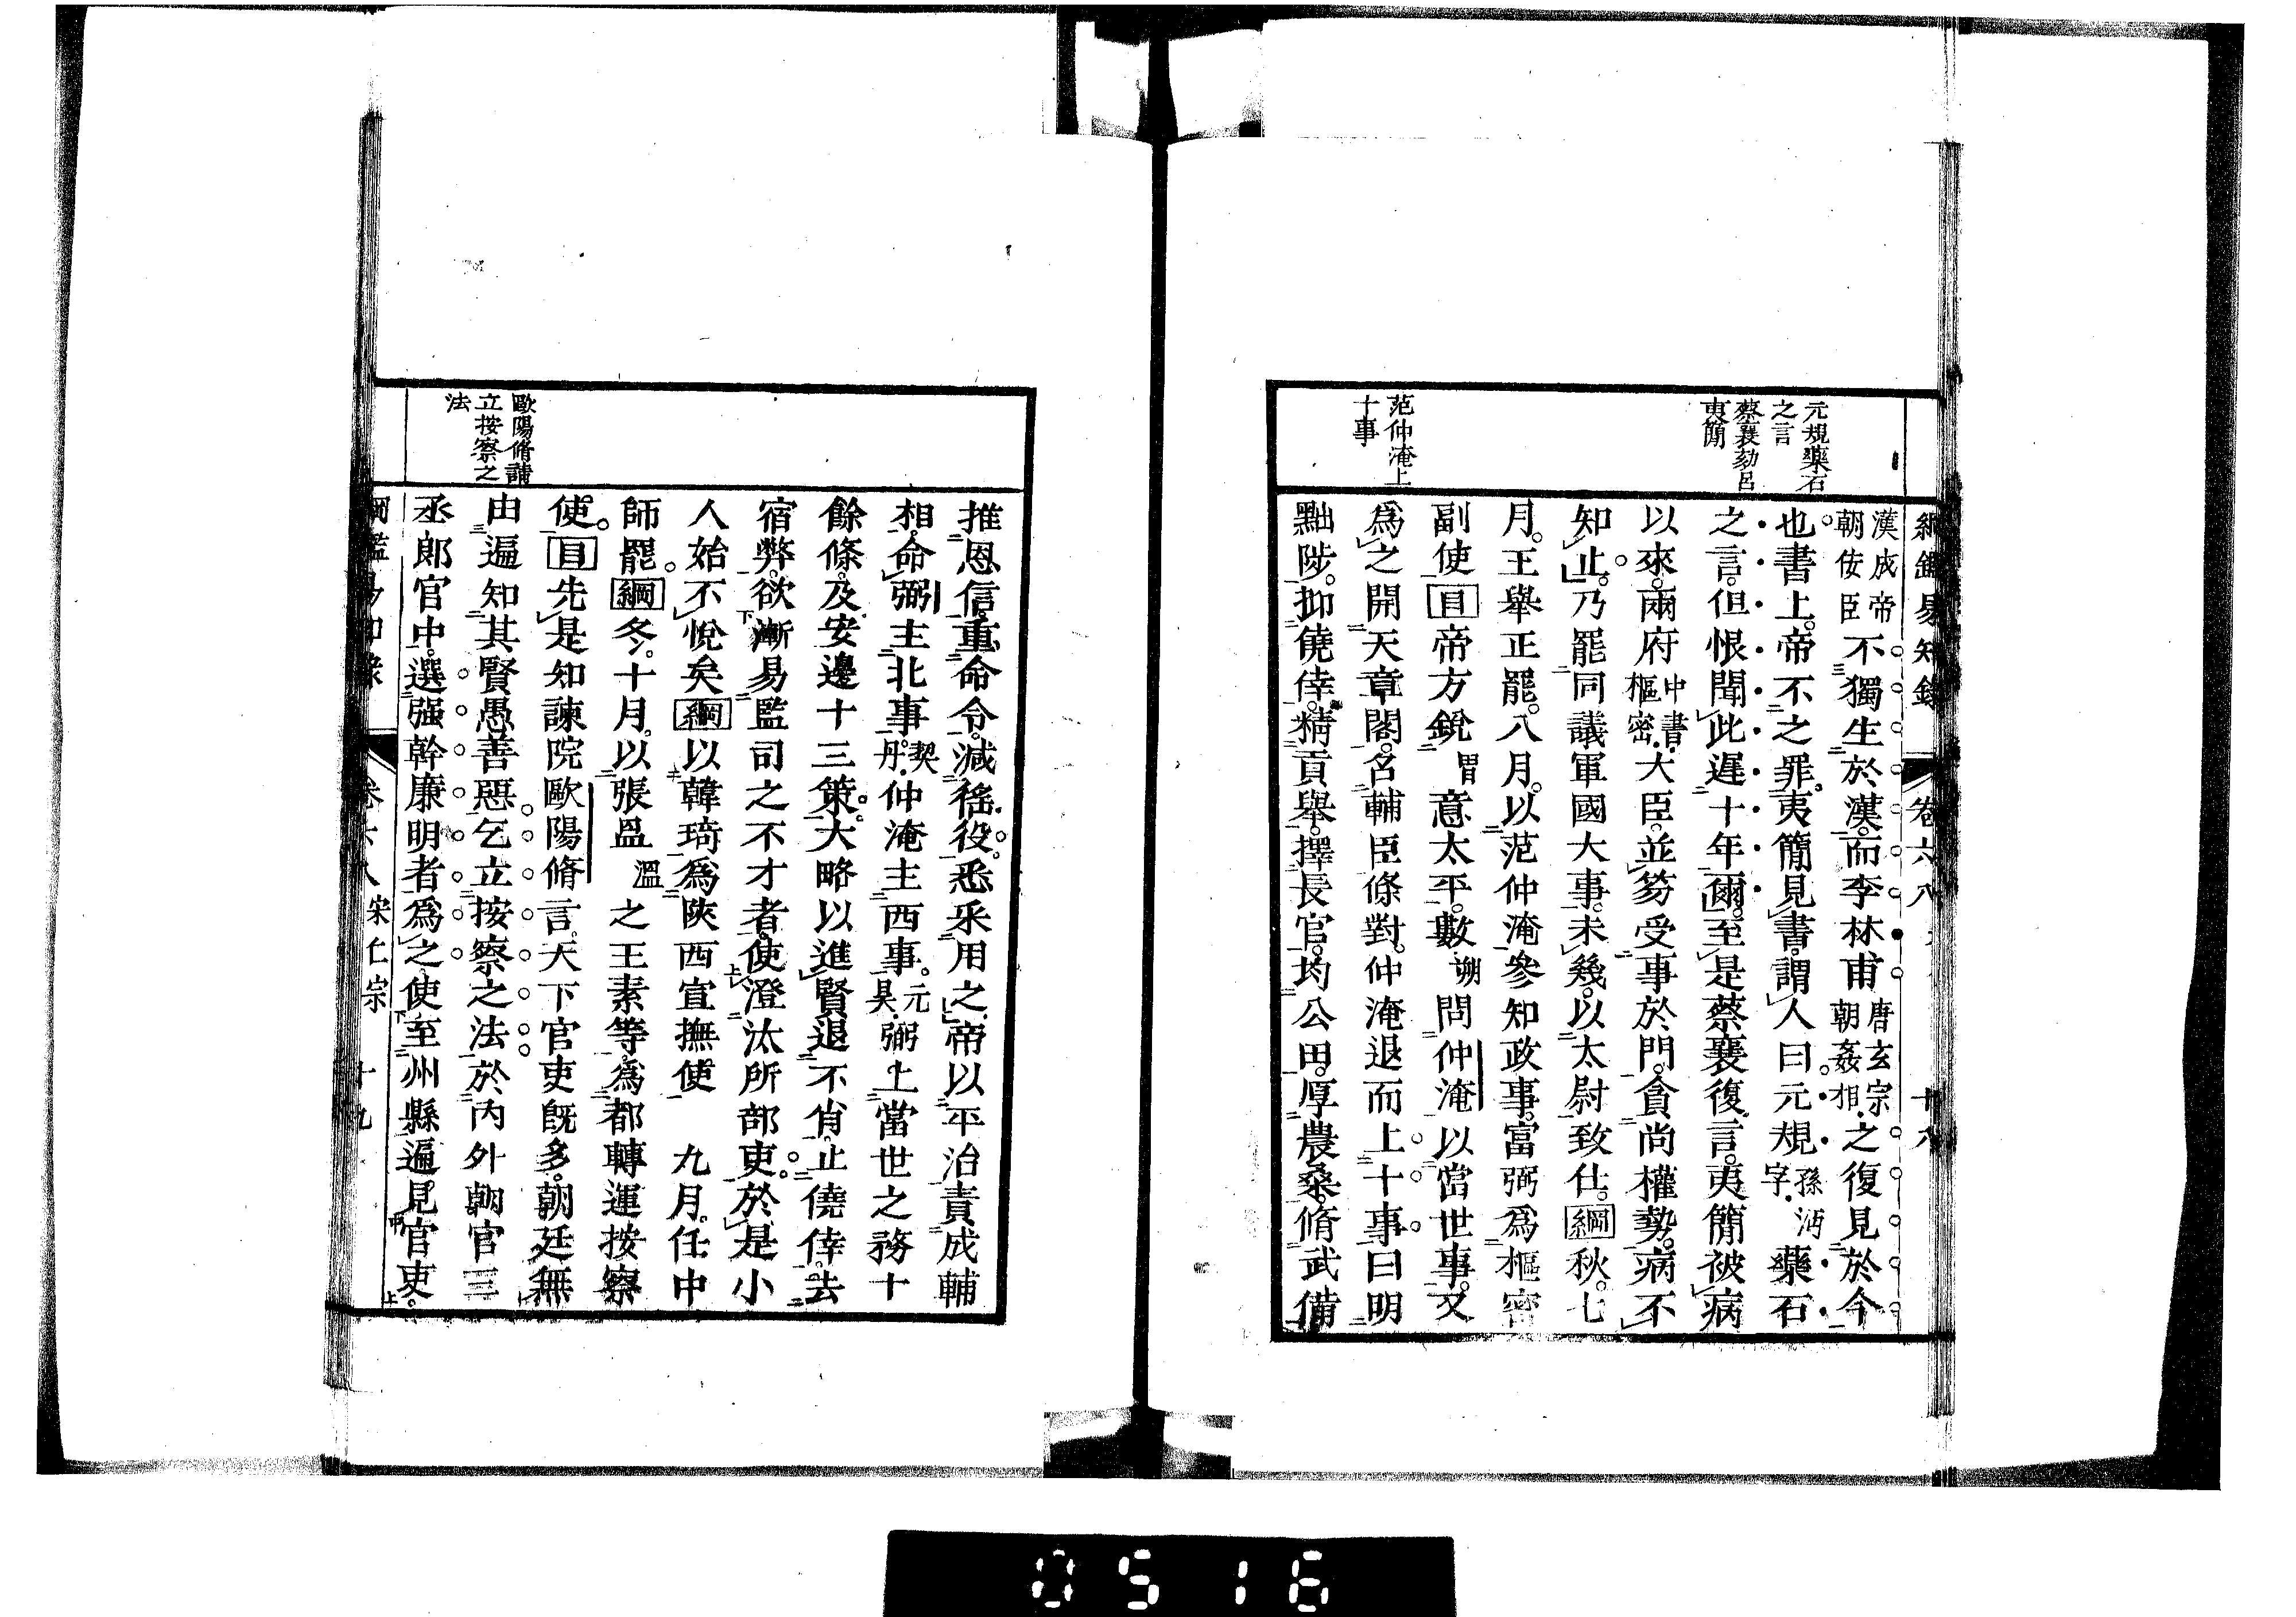 綱鑑易知錄 卷六八 十八
元規藥石
之言
蔡襄劾呂
夷簡
范仲淹上
十事
漢成帝朝佞臣不獨生於漢而李林甫唐玄宗朝姦相之復見於今
也書上帝不之罪夷簡見書謂人曰元規孫沔字藥石
之言但恨聞此遲十年爾至是蔡襄復言夷簡被病
以來兩府中書樞密大臣並笏受事於門貪尚權勢病不
知止乃罷同議軍國大事未幾以太尉致仕綱秋七
月王舉正罷八月以范仲淹參知政事富弼爲樞密
副使目帝方銳胃意太平數朔問仲淹以當世事又
爲之開天章閣召輔臣條對仲淹退而上十事曰明
黜陟抑僥倖精貢舉擇長官均公田厚農桑脩武備
推恩信重命令減徭役悉采用之帝以平治責成輔
相命弼主北事契丹仲淹主西事元昊弼上當世之務十
餘條及安邊十三策大略以進賢退不肖止僥倖去
宿弊欲漸易監司之不才者使澄汰所部吏於是小
人始不悅矣綱以韓琦爲陝西宣撫使 九月任中
師罷綱冬十月以張昷溫之王素等爲都轉運按察
使目先是知諫院歐陽脩言天下官吏旣多朝廷無
由遍知其賢愚善惡乞立按察之法於內外朝官三
丞郎官中選强幹廉明者爲之使至州縣遍見官吏
歐陽脩請
立按察之
法
綱鑑易知錄 卷六八 宋仁宗 十九
0516